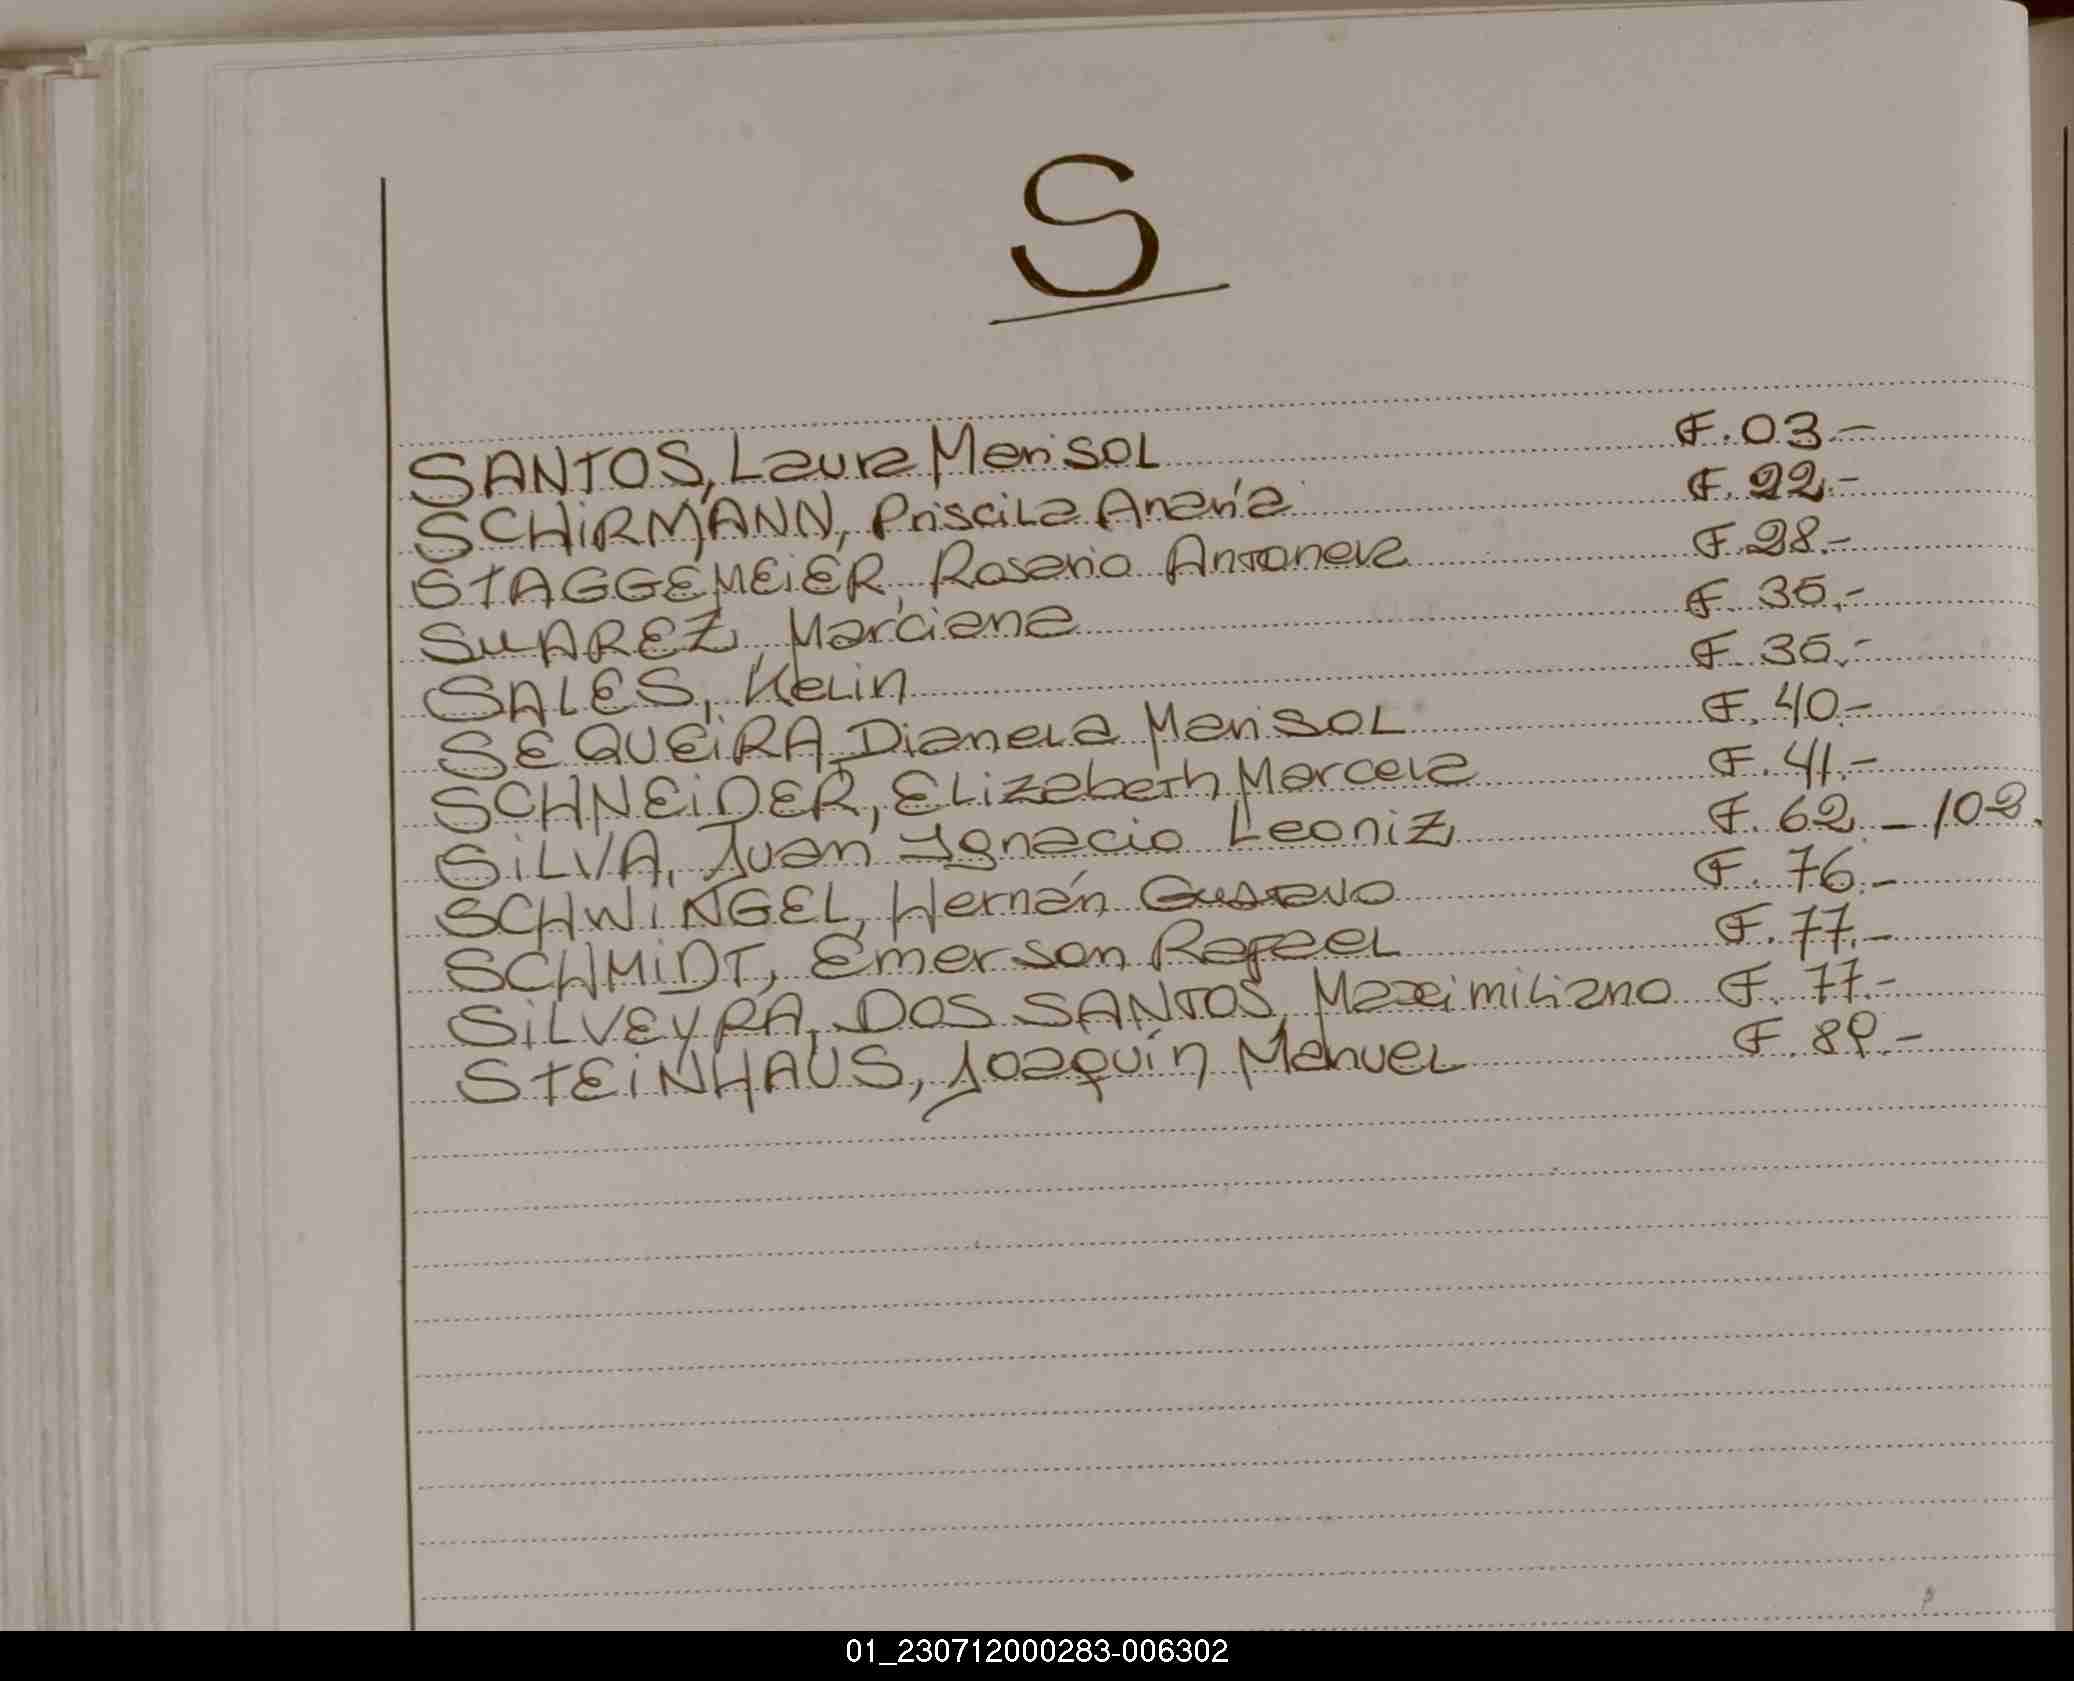 S
SANTOS, Laura Marisol F. 03.-
SCHiRMANN, Priscila Anaría F. 22.-
STAGGEMEiER, Rosario Antonela F. 28.-
SUAREZ, Marciana F. 35.-
SALES, Kelin F. 35.-
SEQUEiRA, Dianela Marisol F. 40.-
SCHNEiDER, Elizabeth Marcela F. 41.-
SiLVA, Juan Ignacio Leoniz F. 62.- 102.
SCHWiNGEL, Hernán Gustavo F. 76.-
SCHMiDT, Emerson Rafael F. 77.-
SiLVEYRA, DOS SANTOS, Maximiliano F. 77.-
STEiNHAUS, Joaquín Manuel F. 89.-
01_230712000283-006302